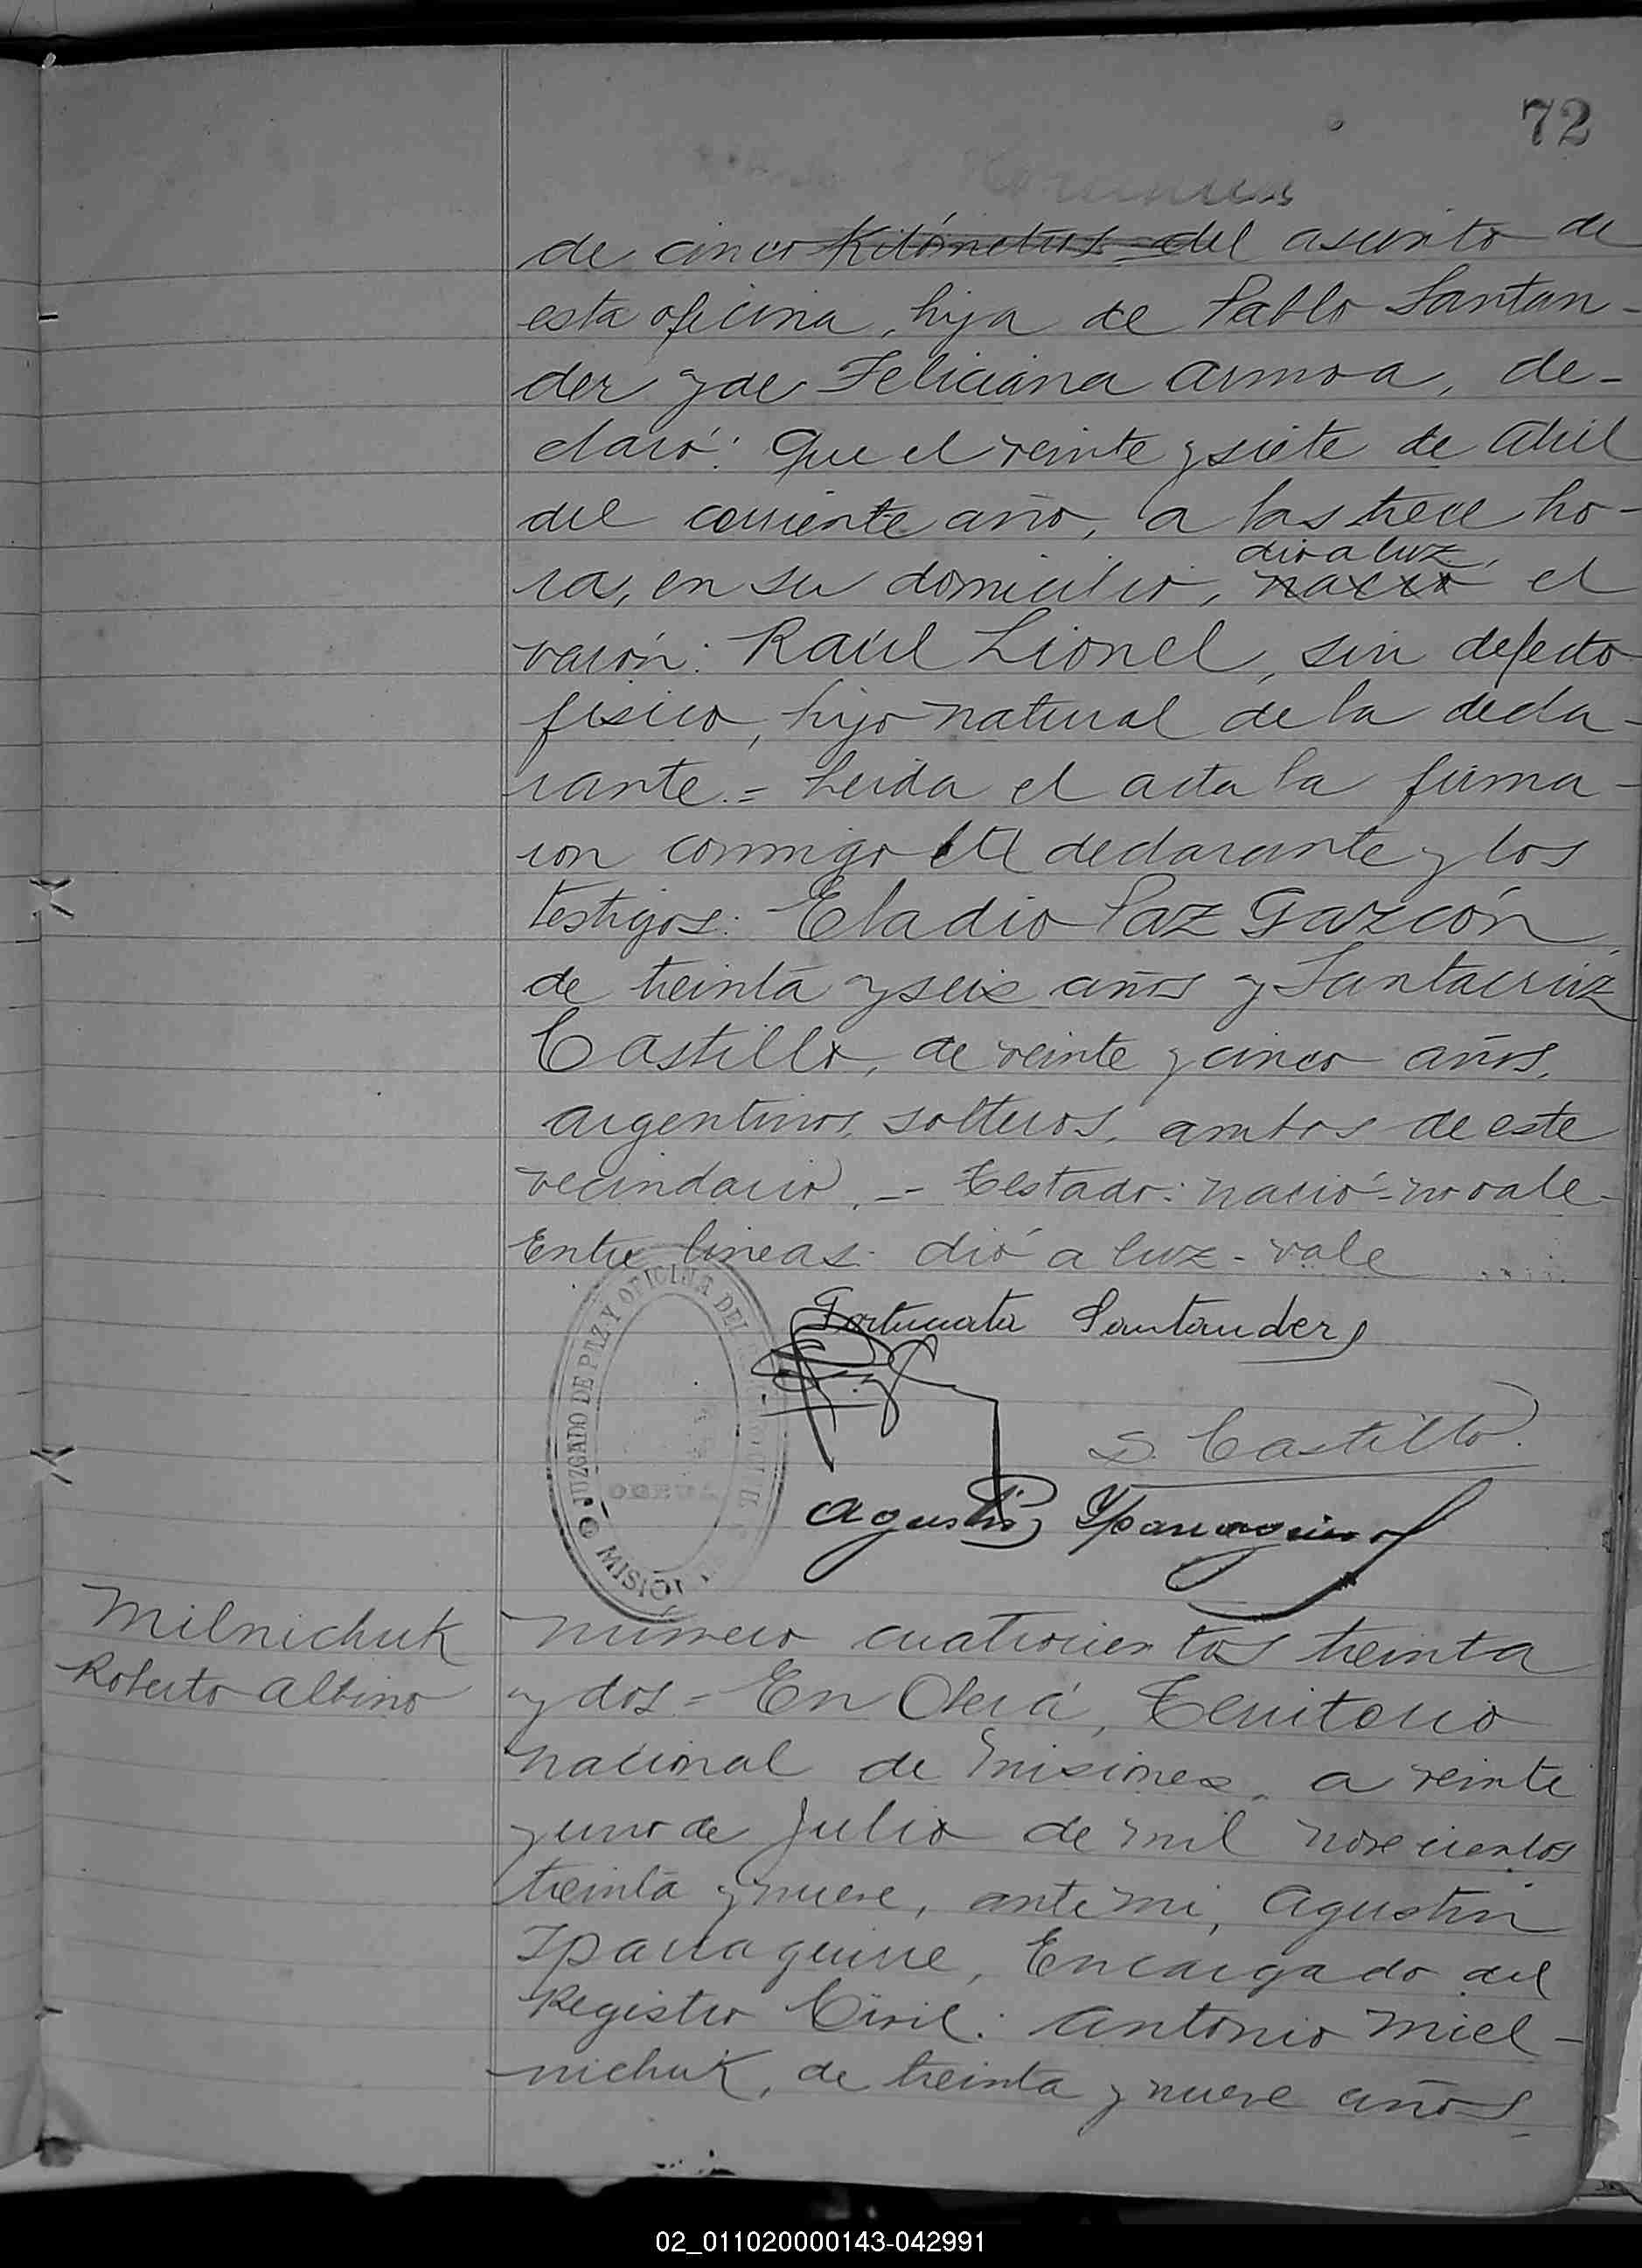 72
de cinco Kilómetros del asiento de
esta oficina, hija de Pablo Santan-
der y de Feliciana Armoa, de-
claró: Que el veinte y siete de Abril
del corriente año, a las trece ho-
dio a luz
ra, en su domicilio, nació el
varón: Raúl Lionel, sin defecto
fisico, hijo natural de la decla-
rante.= Leida el acta la firma-
ron conmigo la declarante y los
testigos: Eladio Paz Garzcón,
de treinta y seis años y Santacruz
Castillo, de veinte y cinco años,
argentinos, solteros, ambos de este
vecindario.- Testado: nació-no vale-
Entre lineas: dió a luz-vale
Fortunata Santander
S. Castillo.
Agustin Yparraguirre
JUZGADO DE PAZ Y OFICINA DEL
MISIONES
Milnichuk
Roberto Albino
Número cuatrocientos treinta
y dos= En Oberá, Territorio
nacional de Misiones, a veinte
y uno de Julio de mil novecientos
treinta y nueve, ante mi, Agustin
Iparraguirre, Encargado del
Registro Civil: Antonio Miel-
nichuk, de treinta y nueve años
02_011020000143-042991